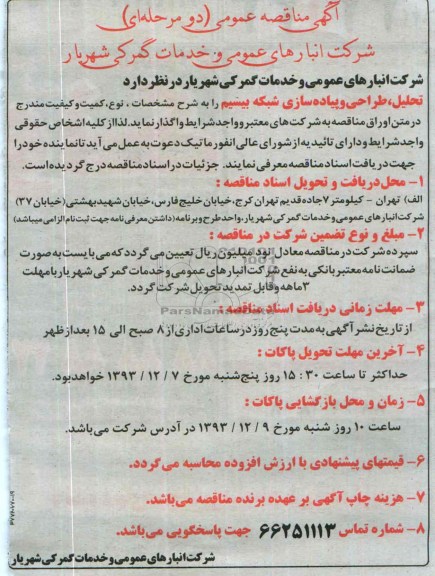 آگهی مناقصه عمومی (دو مرحله‌ای)
شرکت انبارهای عمومی و خدمات گمرکی شهریار
شرکت انبارهای عمومی و خدمات گمرکی شهریار در نظر دارد
تحلیل، طراحی و پیاده‌سازی شبکه بیسیم را به شرح مشخصات ، نوع، کمیت و کیفیت مندرج
در متن اوراق مناقصه به شرکت‌های معتبر و واجد شرایط واگذار نماید. لذا از کلیه اشخاص حقوقی
واجد شرایط و دارای تائیدیه از شورای عالی انفورماتیک دعوت به عمل می آید تا نماینده خود را
جهت دریافت اسناد مناقصه معرفی نمایند. جزئیات در اسناد مناقصه درج گردیده است.
۱- محل دریافت و تحویل اسناد مناقصه :
الف) تهران - کیلومتر ۷ جاده قدیم تهران کرج، خیابان خلیج فارس، خیابان شهید بهشتی (خیابان ۳۷)
شرکت انبارهای عمومی و خدمات گمرکی شهریار، واحد طرح و برنامه (داشتن معرفی نامه جهت ثبت نام الزامی میباشد)
۲- مبلغ و نوع تضمین شرکت در مناقصه :
سپرده شرکت در مناقصه معادل نود میلیون ریال تعیین می گردد که می بایست به صورت
ضمانت نامه معتبر بانکی به نفع شرکت انبارهای عمومی و خدمات گمرکی شهریار با مهلت
۳ ماهه و قابل تمدید تحویل شرکت گردد.
۳- مهلت زمانی دریافت اسناد مناقصه :
از تاریخ نشر آگهی به مدت پنج روز در ساعات اداری از ۸ صبح الی ۱۵ بعدازظهر
۴- آخرین مهلت تحویل پاکات :
حداکثر تا ساعت ۳۰ : ۱۵ روز پنج‌شنبه مورخ ۷ / ۱۲ / ۱۳۹۳ خواهد بود.
۵- زمان و محل بازگشایی پاکات :
ساعت ۱۰ روز شنبه مورخ ۹ / ۱۲ / ۱۳۹۳ در آدرس شرکت می‌باشد.
۶- قیمتهای پیشنهادی با ارزش افزوده محاسبه می‌گردد.
۷- هزینه چاپ آگهی بر عهده برنده مناقصه می‌باشد.
۸- شماره تماس ۶۶۲۵۱۱۱۳ جهت پاسخگویی می‌باشد.
شرکت انبارهای عمومی و خدمات گمرکی شهریار